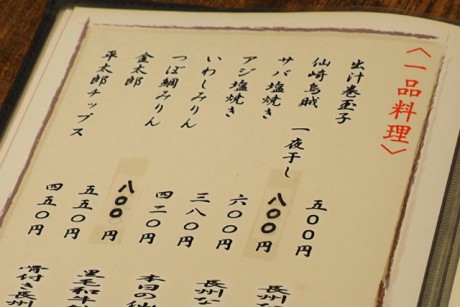 〈一品料理〉
出汁巻玉子 五〇〇円
仙崎烏賊 一夜干し 八〇〇円
サバ塩焼き 六〇〇円
アジ塩焼き 三八〇円
いわしみりん 四二〇円
つぼ鯛みりん 八〇〇円
金太郎 五五〇円
平太郎チップス 四五〇円
長州な
長州な
本日の仙
黒毛和牛
骨付き長州